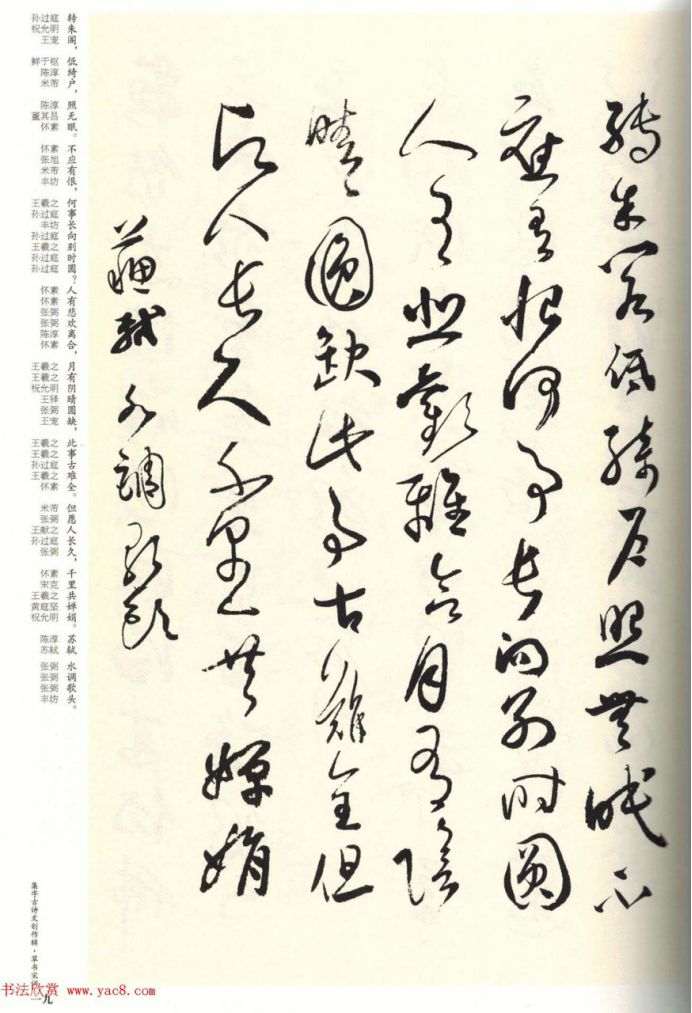 轉朱閣低綺户照無眠不
應有恨何事長向別時圓
人有悲歡離合月有陰
晴圓缺此事古難全但
願人長久千里共嬋娟
蘇軾 水調歌頭
转朱阁，低绮户，照无眠。不应有恨，何事长向别时圆？人有悲欢离合，月有阴晴圆缺，此事古难全。但愿人长久，千里共婵娟。苏轼 水调歌头。
孙过庭 祝允明 王宠 鲜于枢 陈淳 米芾 陈淳 董其昌 怀素 怀素 张旭 米芾 丰坊 王羲之 孙过庭 丰坊 孙过庭 王羲之 孙过庭 孙过庭 怀素 怀素 张弼 张弼 陈淳 怀素 王羲之 王羲之 祝允明 王铎 张弼 王宠 王羲之 王羲之 孙过庭 王羲之 怀素 米芾 张弼 王献之 孙过庭 张弼 怀素 宋克 王羲之 黄庭坚 祝允明 陈淳 苏轼 张弼 张弼 张弼 丰坊
集字古诗文创作辑·草书宋词
一九
书法欣赏 www.yac8.com